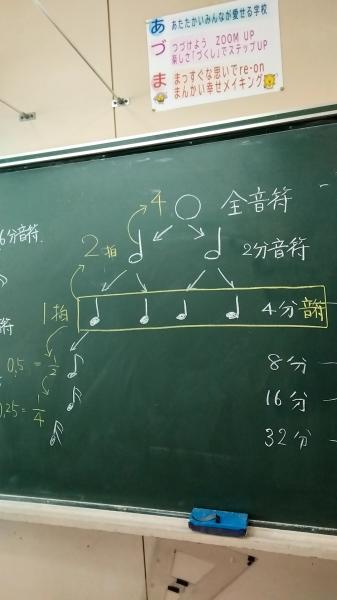 あ あたたかいみんなが愛せる学校
づ つづけよう ZOOM UP
楽しさ「づくし」でステップUP
ま まっすぐな思いでre-on
まんかい幸せメイキング
4 全音符
6分音符.
2拍 2分音符
1拍 4分音符
符
0.5 = 1/2 8分
0.25 = 1/4 16分
32分